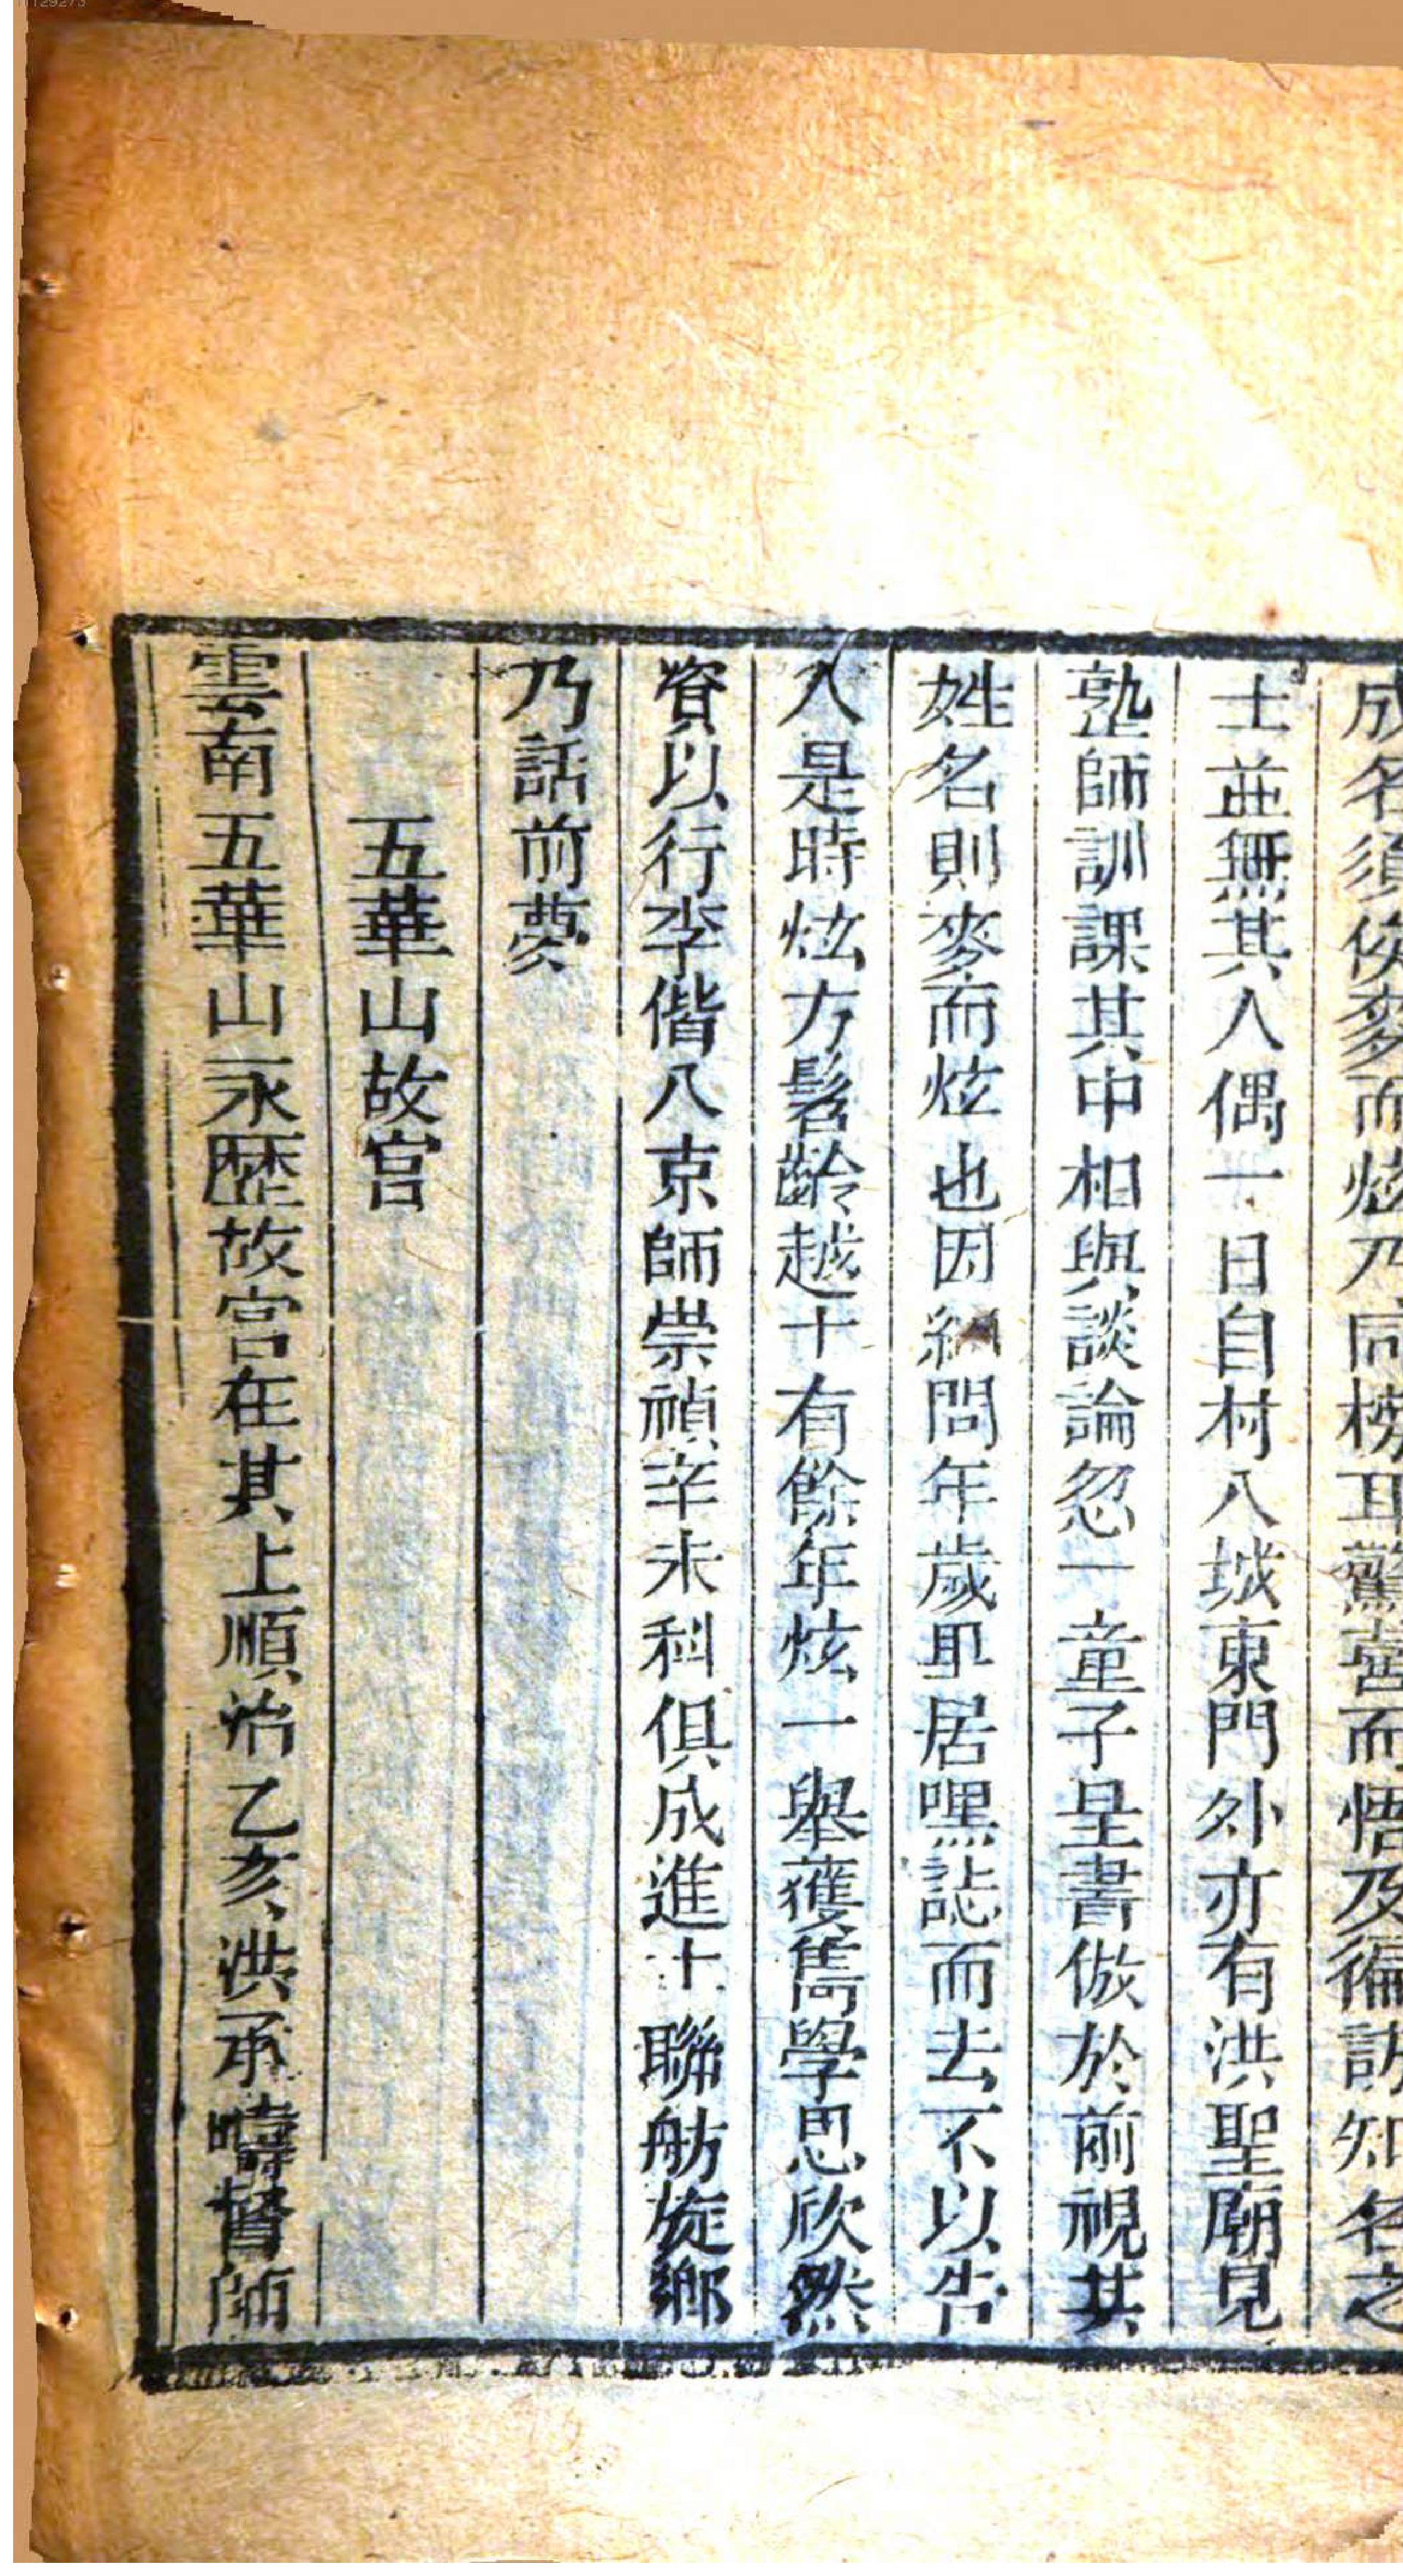 成名須俟麥而炫乃同榜耳驚寤而悟及徧訪知名之
士並無其人偶一日自村入城東門外亦有洪聖廟見
塾師訓課其中相與談論忽一童子呈書倣於前視其
姓名則麥而炫也因細問年歲里居嘿誌而去不以告
人是時炫方髫齡越十有餘年炫一舉獲雋學思欣然
資以行李偕入京師崇禎辛未科俱成進士聯舫旋鄉
乃話前夢
五華山故宮
雲南五華山永歷故宮在其上順治乙亥洪承疇督師